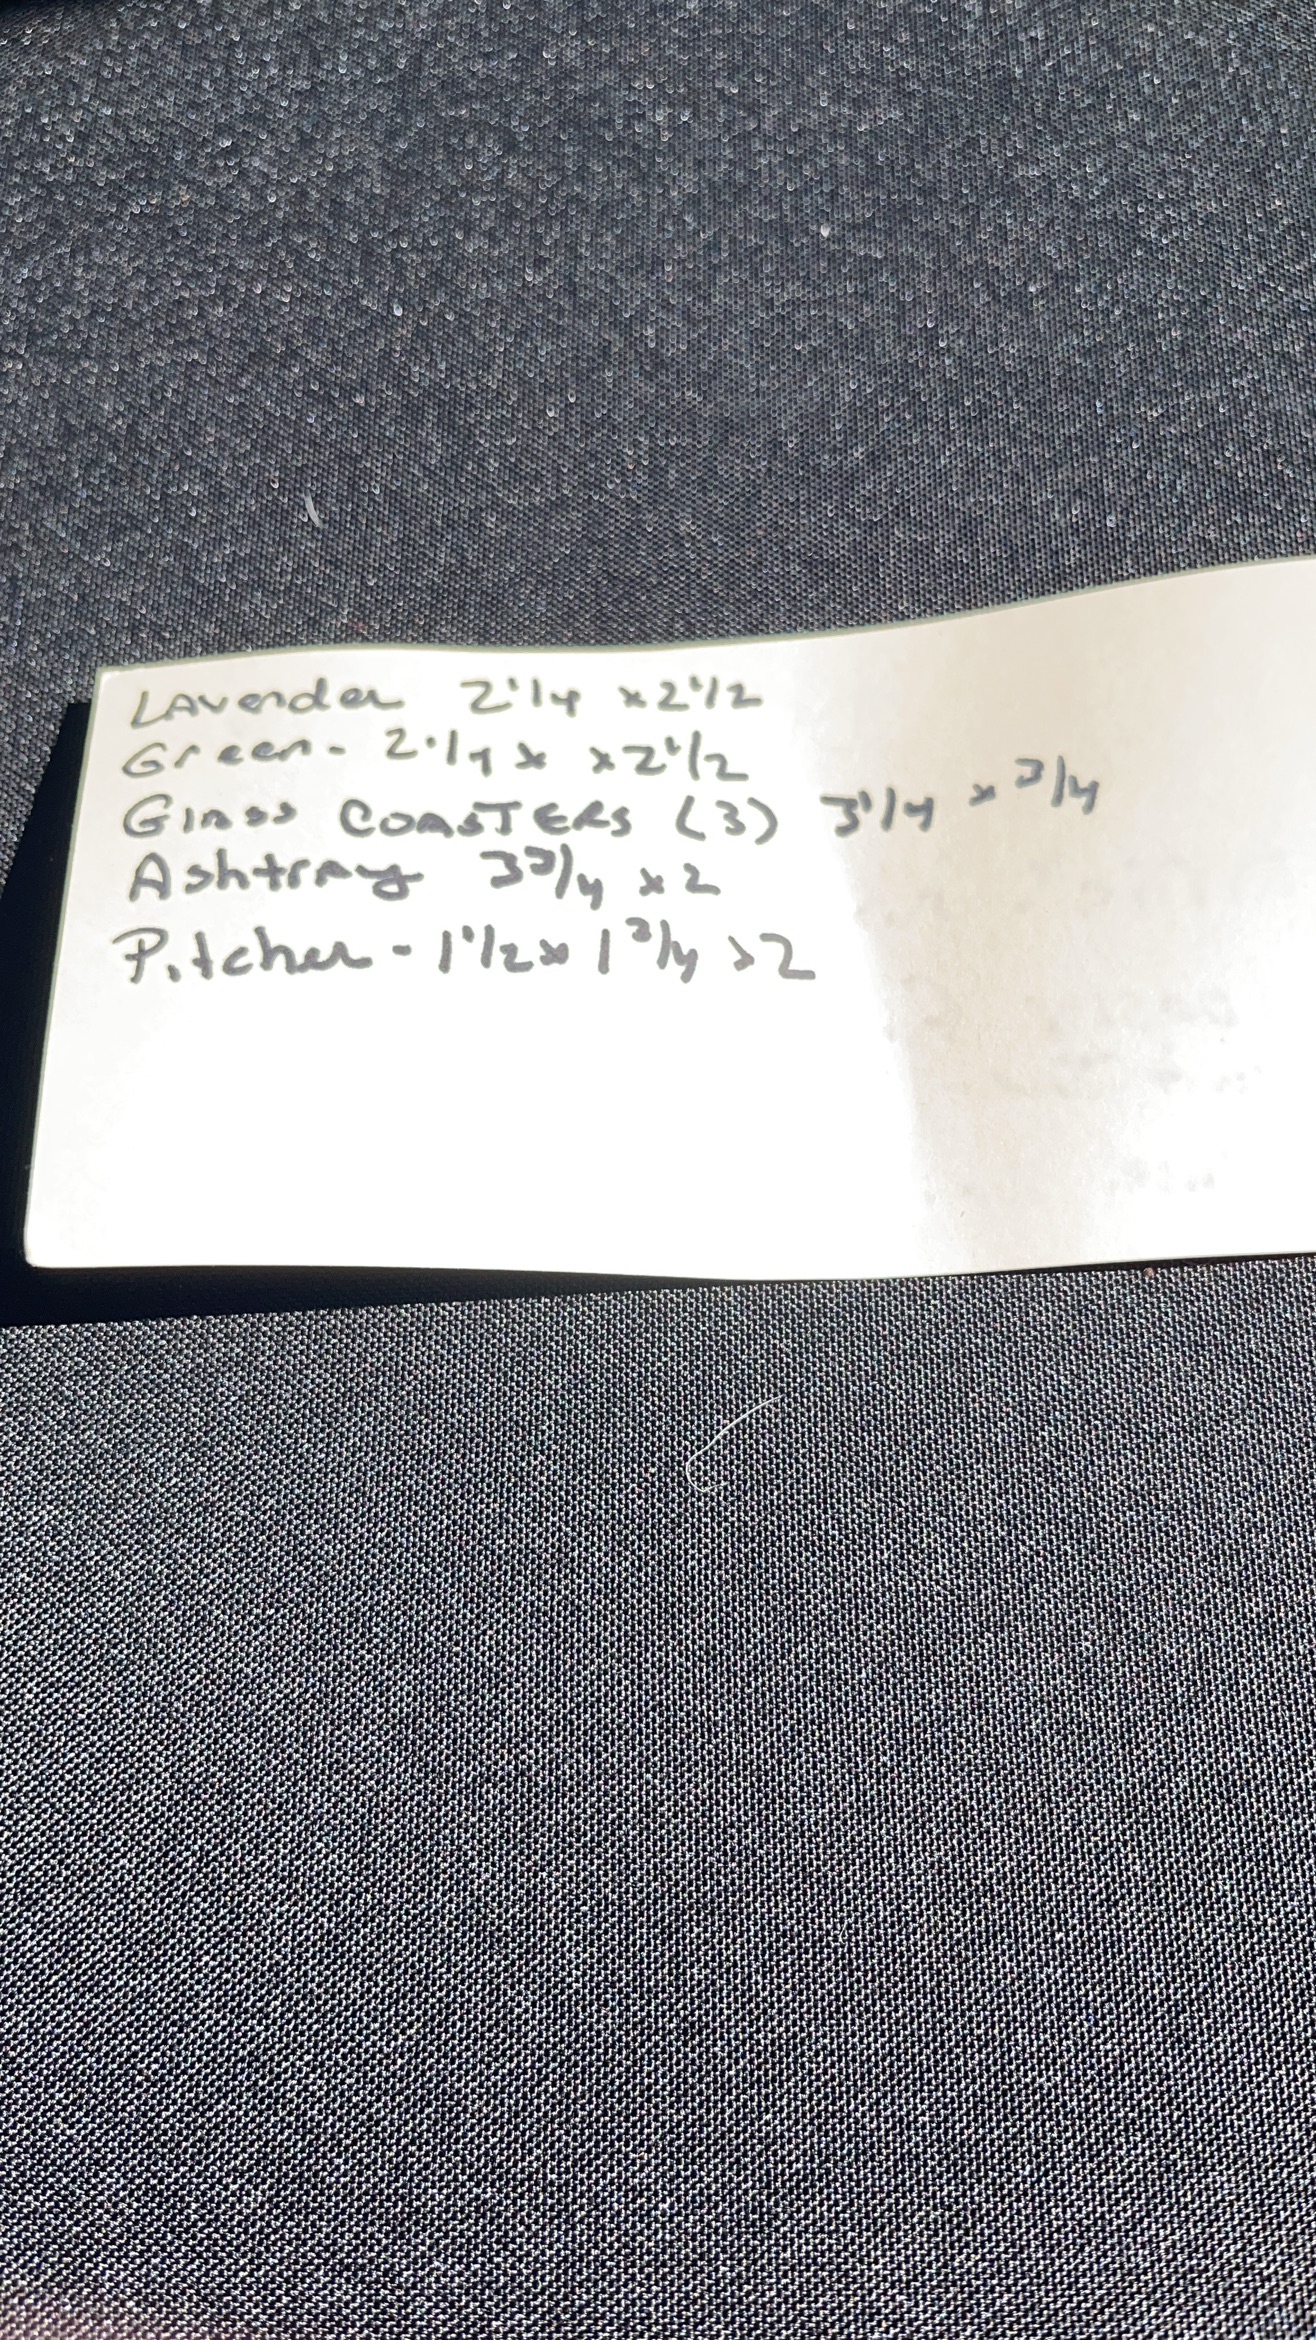 Lavender 2 1/4 x 2 1/2
Green - 2 1/4 x x 2 1/2
Glass COASTERS (3) 3 1/4 x 3/4
Ashtray 3 3/4 x 2
Pitcher - 1 1/2 x 1 3/4 x 2